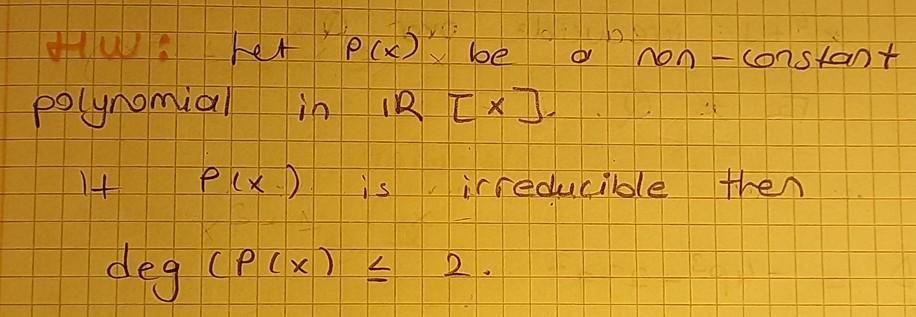 HW: Let P(x) be a non-constant
polynomial in ℝ[x].
If P(x) is irreducible then
deg (P(x) ≤ 2.